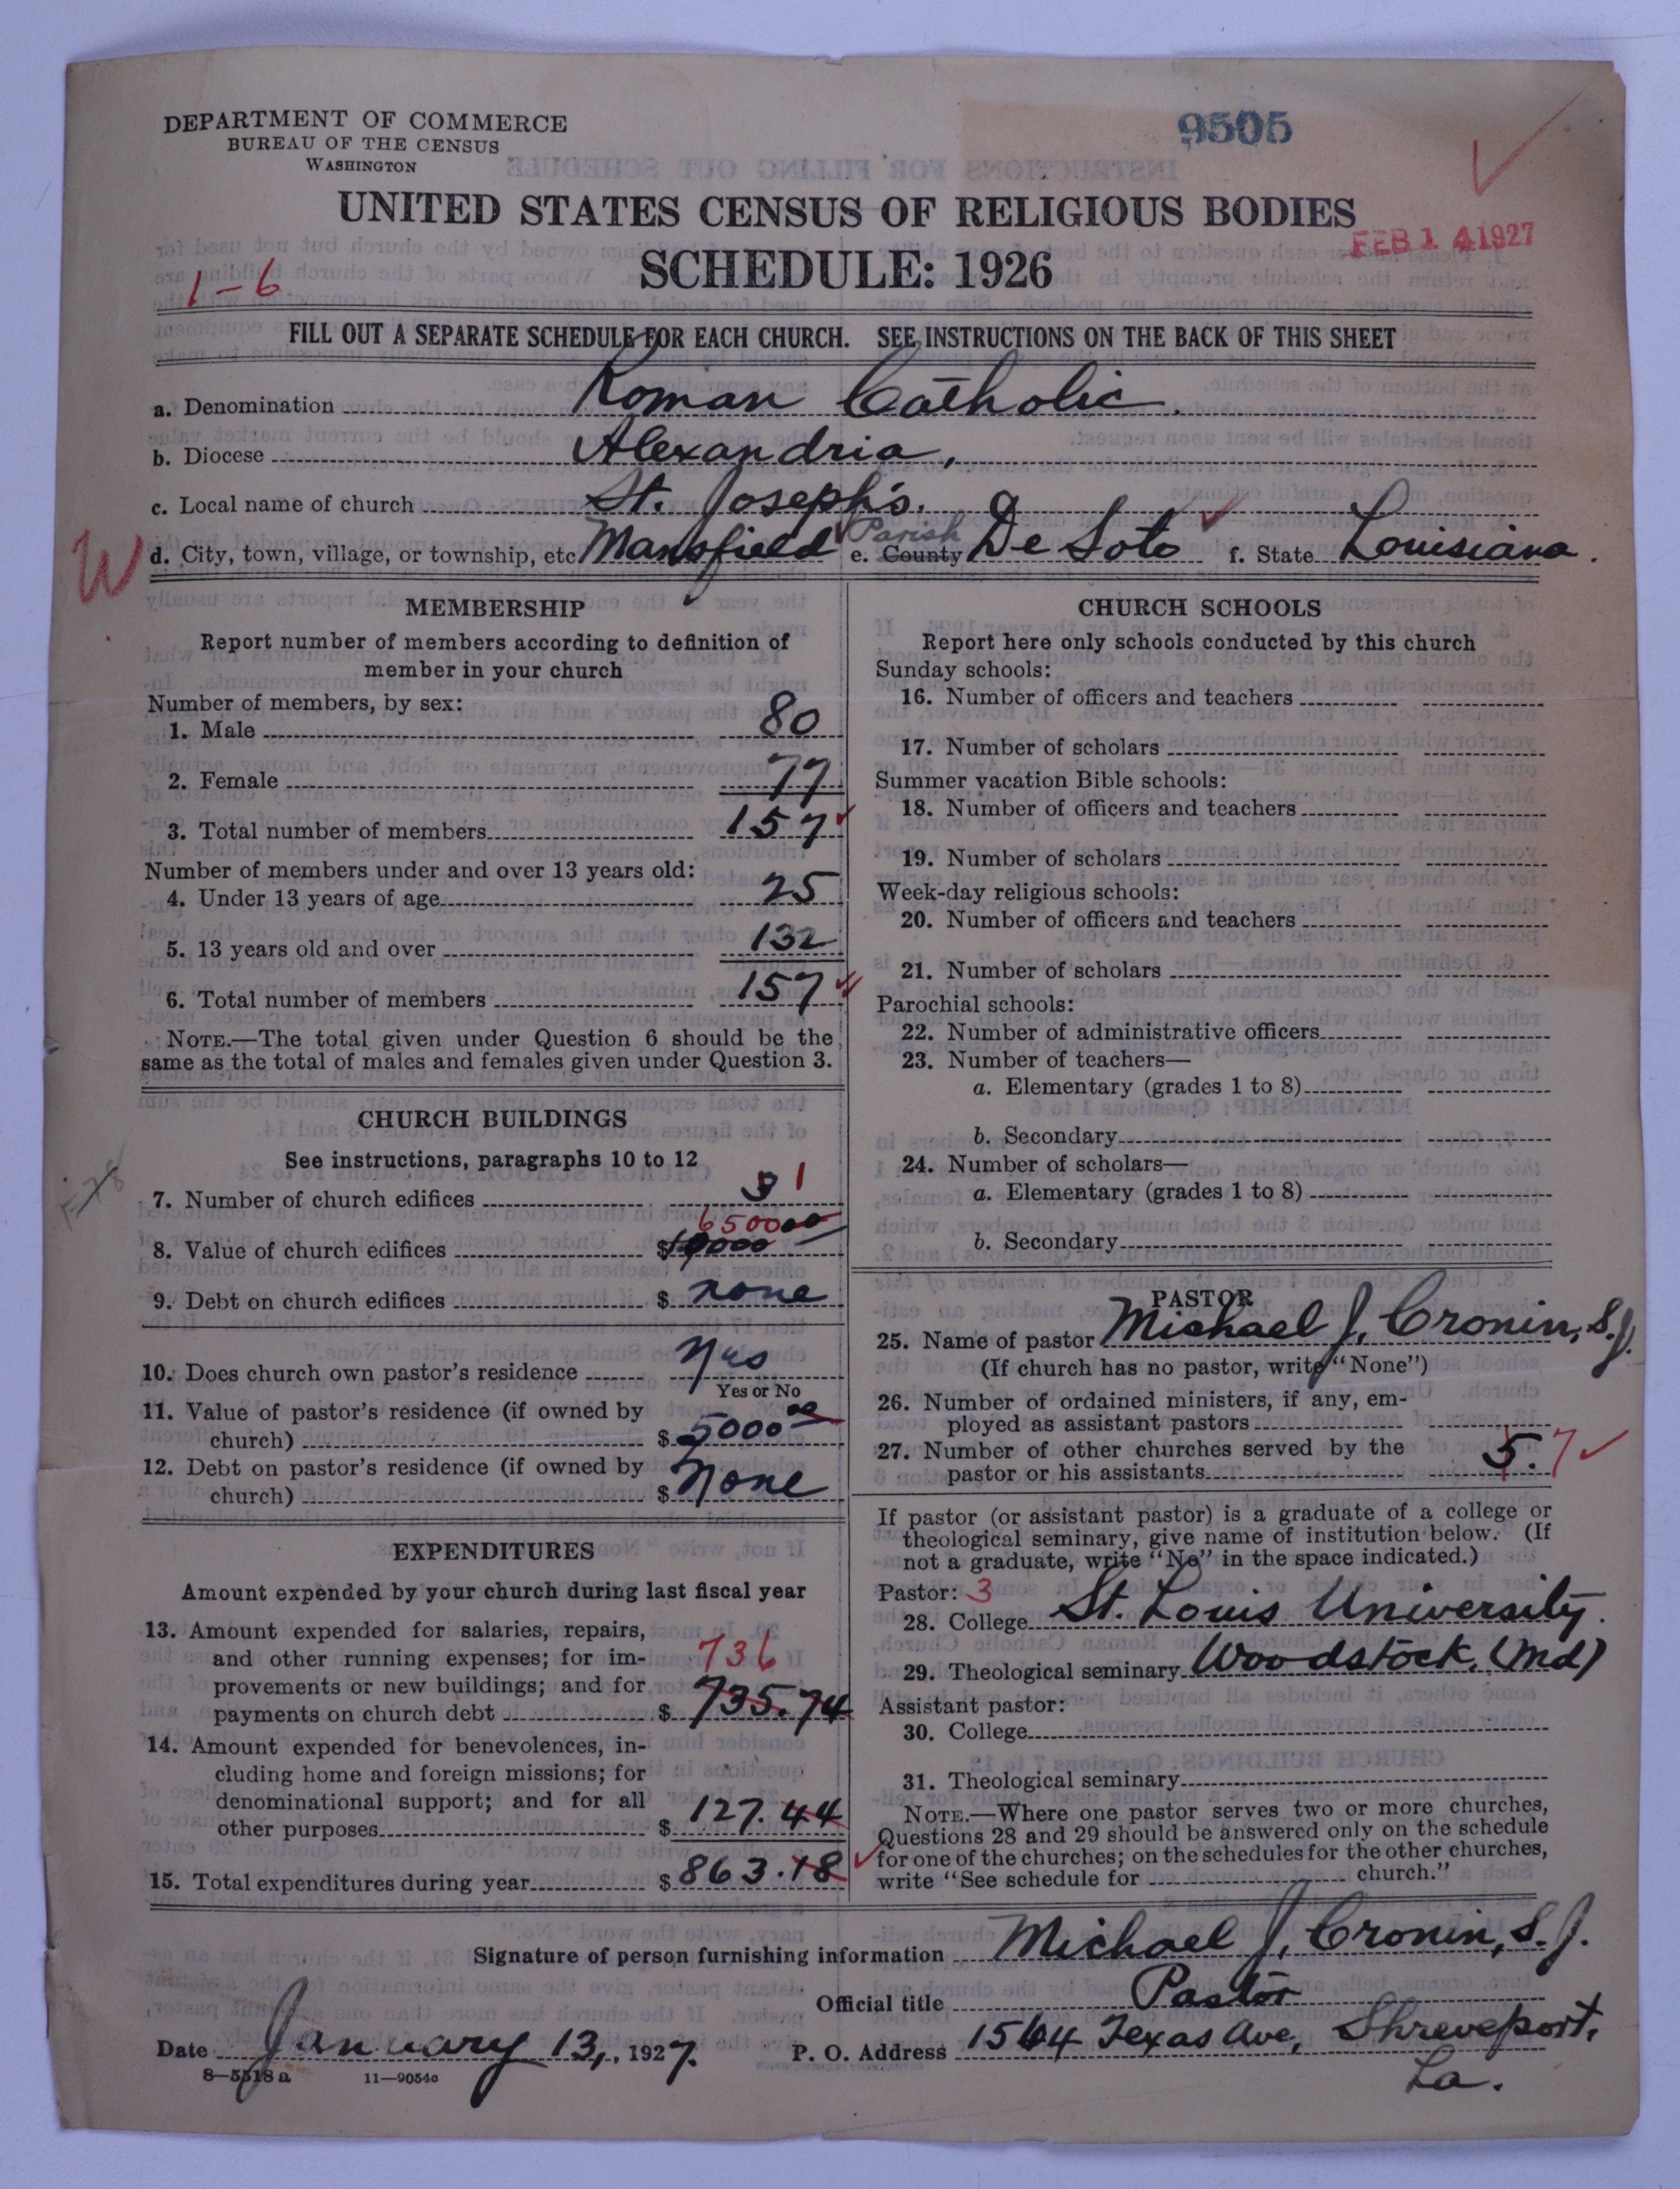 DEPARTMENT OF COMMERCE
BUREAU OF THE CENSUS
WASHINGTON
9505
UNITED STATES CENSUS OF RELIGIOUS BODIES
FEB 14 1927
SCHEDULE: 1926
1-6
FILL OUT A SEPARATE SCHEDULE FOR EACH CHURCH. SEE INSTRUCTIONS ON THE BACK OF THIS SHEET
a. Denomination Roman Catholic.
b. Diocese Alexandria,
c. Local name of church St. Joseph's.
W
d. City, town, village, or township, etc Mansfield e. County Parish De Soto f. State Louisiana.
MEMBERSHIP
Report number of members according to definition of
member in your church
Number of members, by sex:
1. Male 80
2. Female 77
3. Total number of members 157
Number of members under and over 13 years old:
4. Under 13 years of age 25
5. 13 years old and over 132
6. Total number of members 157
NOTE.—The total given under Question 6 should be the
same as the total of males and females given under Question 3.
CHURCH BUILDINGS
See instructions, paragraphs 10 to 12
7. Number of church edifices 1
6500
8. Value of church edifices $
9. Debt on church edifices $ none
10. Does church own pastor's residence Yes
Yes or No
11. Value of pastor's residence (if owned by
church) $ 5000 00
12. Debt on pastor's residence (if owned by
church) $ None
EXPENDITURES
Amount expended by your church during last fiscal year
13. Amount expended for salaries, repairs,
and other running expenses; for im-
provements or new buildings; and for
payments on church debt $ 735.74
736
14. Amount expended for benevolences, in-
cluding home and foreign missions; for
denominational support; and for all
other purposes $ 127.44
15. Total expenditures during year $ 863.18
CHURCH SCHOOLS
Report here only schools conducted by this church
Sunday schools:
16. Number of officers and teachers
17. Number of scholars
Summer vacation Bible schools:
18. Number of officers and teachers
19. Number of scholars
Week-day religious schools:
20. Number of officers and teachers
21. Number of scholars
Parochial schools:
22. Number of administrative officers
23. Number of teachers—
a. Elementary (grades 1 to 8)
b. Secondary
24. Number of scholars—
a. Elementary (grades 1 to 8)
b. Secondary
PASTOR
25. Name of pastor Michael J. Cronin, S.J.
(If church has no pastor, write "None")
26. Number of ordained ministers, if any, em-
ployed as assistant pastors
27. Number of other churches served by the
pastor or his assistants 5. 7
If pastor (or assistant pastor) is a graduate of a college or
theological seminary, give name of institution below. (If
not a graduate, write "No" in the space indicated.)
Pastor: 3
28. College St. Louis University.
29. Theological seminary Woodstock, (Md)
Assistant pastor:
30. College
31. Theological seminary
NOTE.—Where one pastor serves two or more churches,
Questions 28 and 29 should be answered only on the schedule
for one of the churches; on the schedules for the other churches,
write "See schedule for church."
Signature of person furnishing information Michael J. Cronin, S.J.
Official title Pastor
Date January 13, 1927. P. O. Address 1564 Texas Ave, Shreveport,
La.
8—5518a 11—9054c